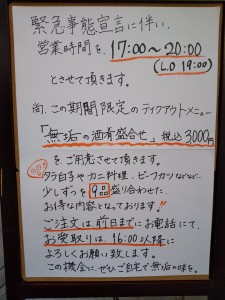 緊急事態宣言に伴い、
営業時間を、17:00～20:00
(L.O 19:00)
とさせて頂きます。
尚、この期間限定のテイクアウトメニュー
「無垢の酒肴盛合せ」税込3000円
をご用意させて頂きます。
タラ白子やカニ料理、ビーフカツなどなど
少しずつを9品盛り合わせた、
お得な内容となっております!!
ご注文は、前日までにお電話にて、
お受取りは、16:00以降に
よろしくお願い致します。
この機会に、ぜひご自宅で無垢の味を。